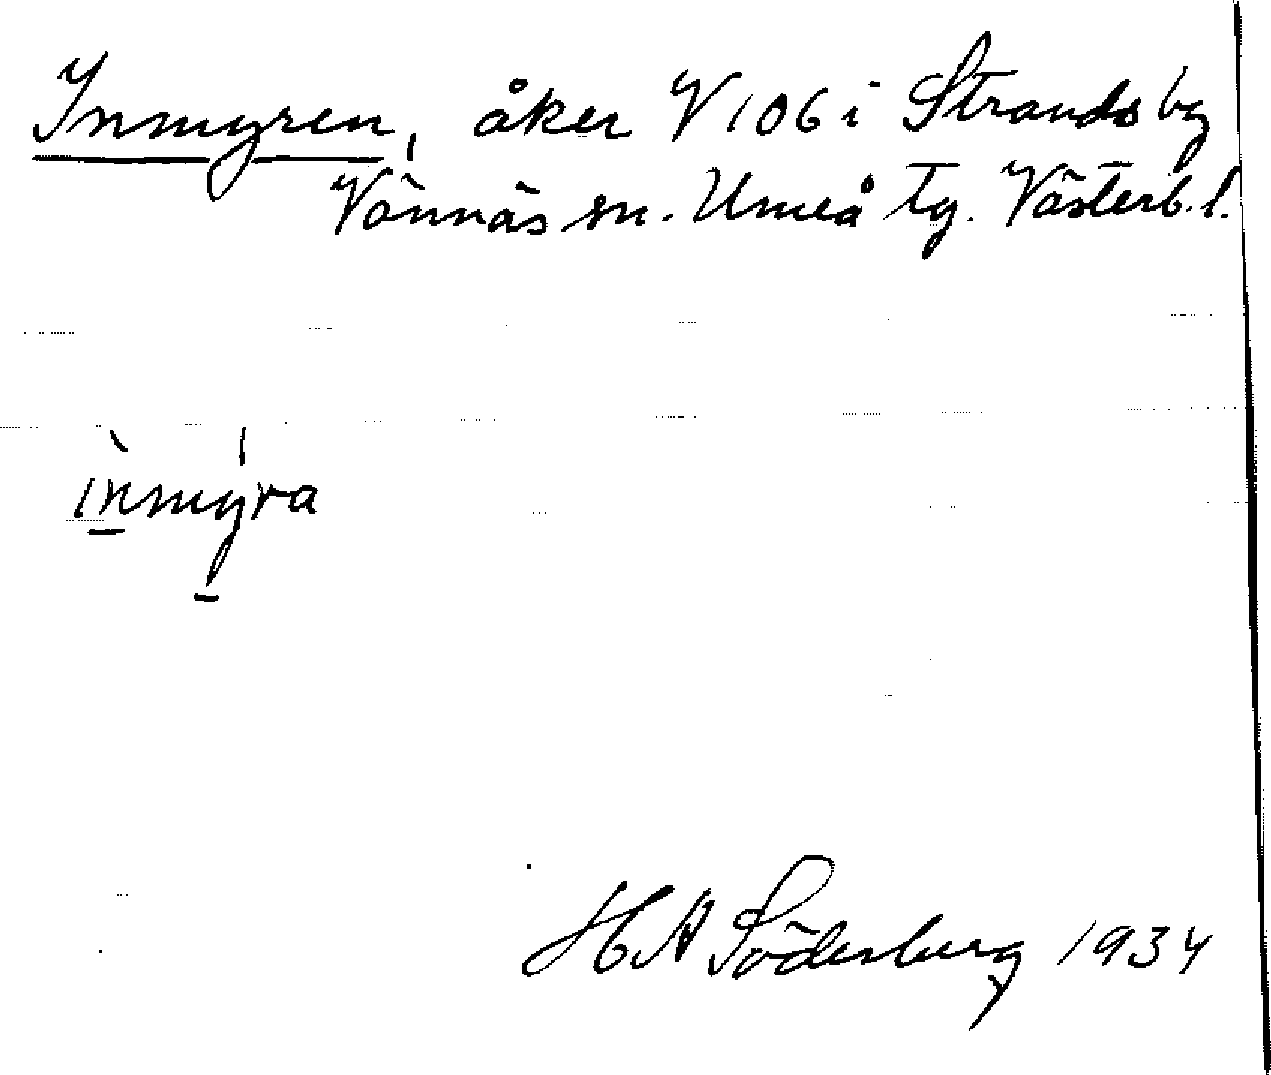 Inmyren, åker V106 i Strands by
Vännäs sn. Umeå tg. Västerb. l.
ìnmýra
H A Söderberg 1934